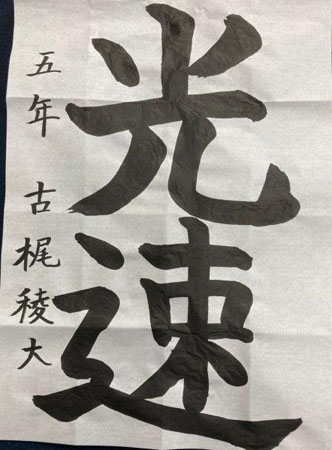 光速
五年 古梶稜大